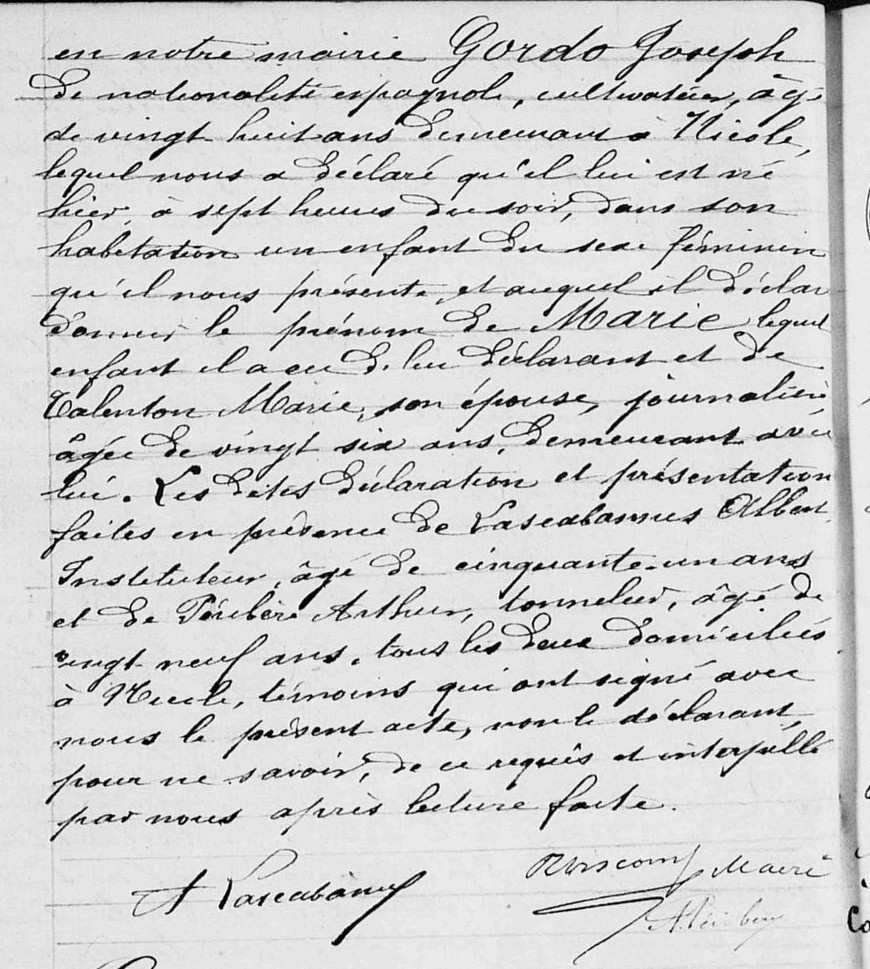 en notre mairie Gordo Joseph
de nationalité espagnole, cultivateur, âgé
de vingt huit ans demeurant à Nicole,
lequel nous a déclaré qu'il lui est né
hier, à sept heures du soir, dans son
habitation un enfant du sexe féminin
qu'il nous présente, et auquel il déclar
donner le prénom de Marie, lequel
enfant il a eu de lui déclarant et de
Talenton Marie, son épouse, journalière
âgée de vingt six ans, demeurant avec
lui. Les dites déclaration et présentation
faites en présence de Lascabannes Albert
Instituteur, âgé de cinquante-un ans
et de Péribère Arthur, tonnelier, âgé de
vingt neuf ans, tous les deux domiciliés
à Nicole, témoins qui ont signé avec
nous le présent acte, non le déclarant,
pour ne savoir, de ce requis et interpellé
par nous après lecture faite.
A Lascabannes Maire